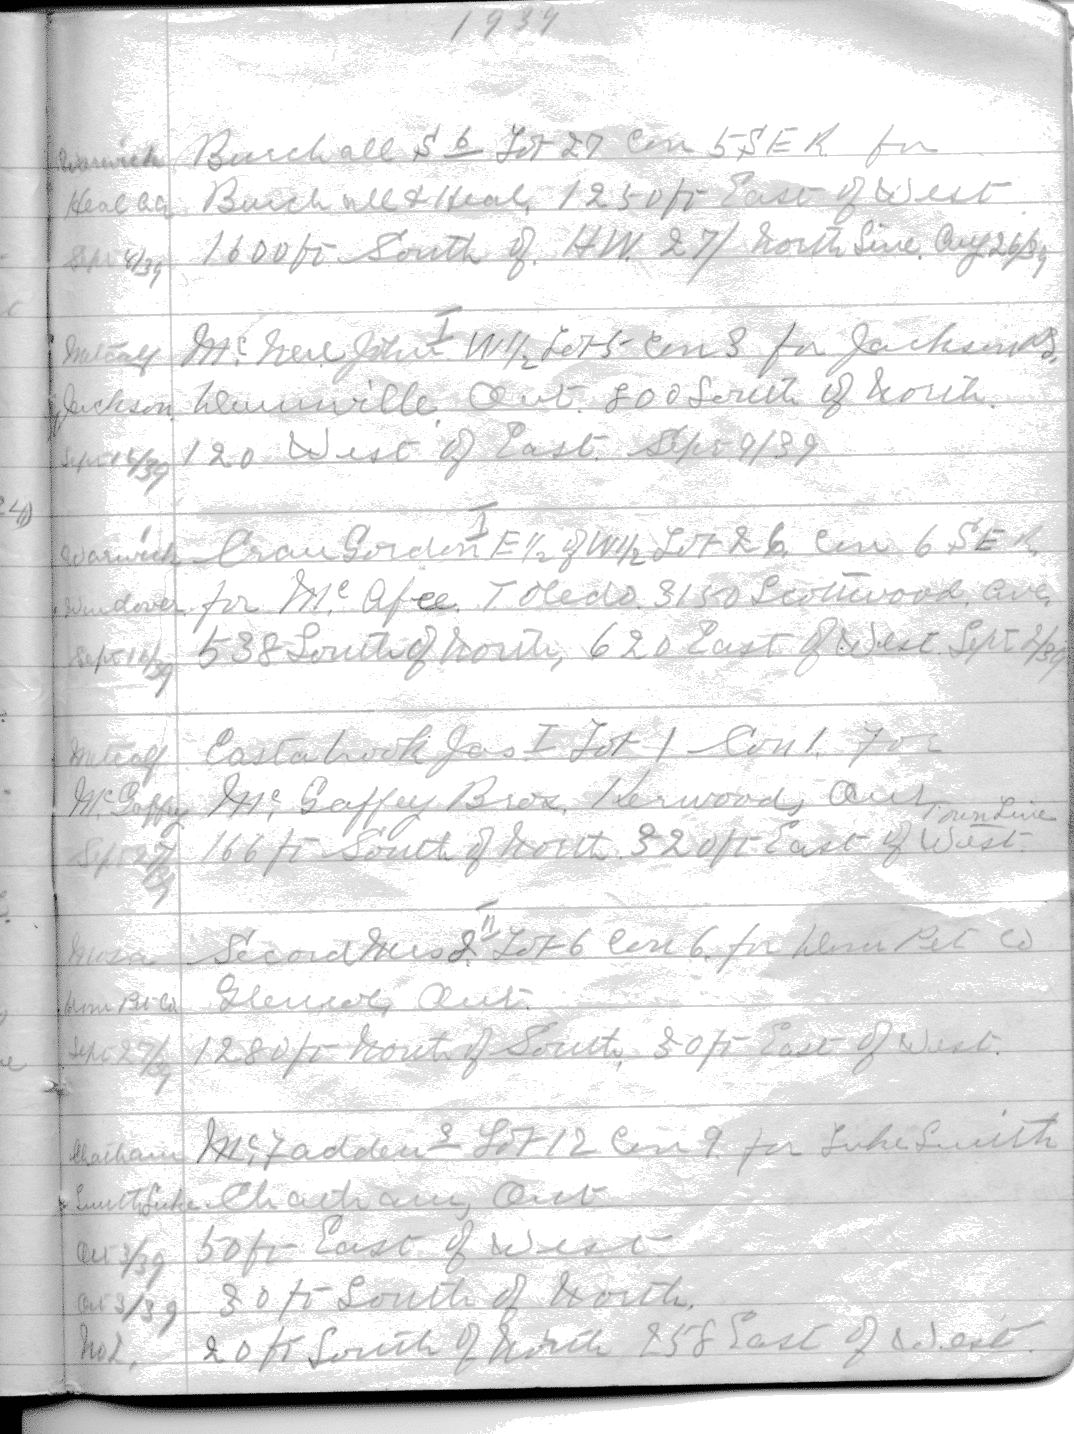 1939
Warwick Burchall S 6 Lot 27 Con 5 S E R for
Heal Burchall & Heal, 1250 ft East of West
Sept 4/39 1600 ft South of H.W. 27/ North Line. Aug 26/39
Metcalf Mc Neil John I W 1/2 Lot 5 Con 3 for Jackson
Jackson Dunnville, Ont. 800 South of North.
Sept 16/39 120 West of East. Sept 9/39
Warwick Gordon I E 1/2 of W 1/2 Lot 26 Con 6 S E R.
Windover for Mc Afee. Toledo. 3150 Scottwood. Ave.
Sept 16/39 538 South of North, 620 East of West. Sept 2/39
Metcalf Eastabrook Jas I Lot 1 Con 1. For
Mc Gaffey Mc Gaffey Bros. Kerwood, Ont.
Town Line
Sept 166 ft South of North 320 ft East of West.
Mosa Secord Mrs Lot 6 Con 6. for Dom Pet Co
Dom Pet Co Glencoe, Ont.
Sept 27/39 1280 ft North of South, 30 ft East of West.
Chatham Mc Fadden Lot 12 Con 9. for Luke Smith
Smith Luke Chatham, Ont
Oct 3/39 50 ft East of West
Oct 3/39 30 ft South of North.
No 2, 20 ft South of North 258 East of West.